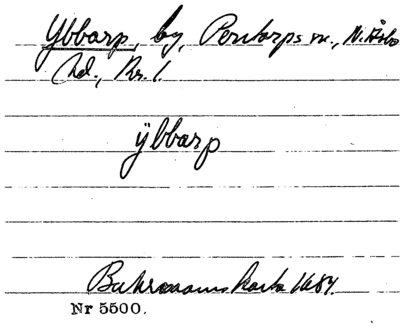 Ybbarp, by, Perstorps sn., N. Åsbo
hd., Kr. l.
ÿbbarp
Buhrmanns karta 1684.
Nr 5500.